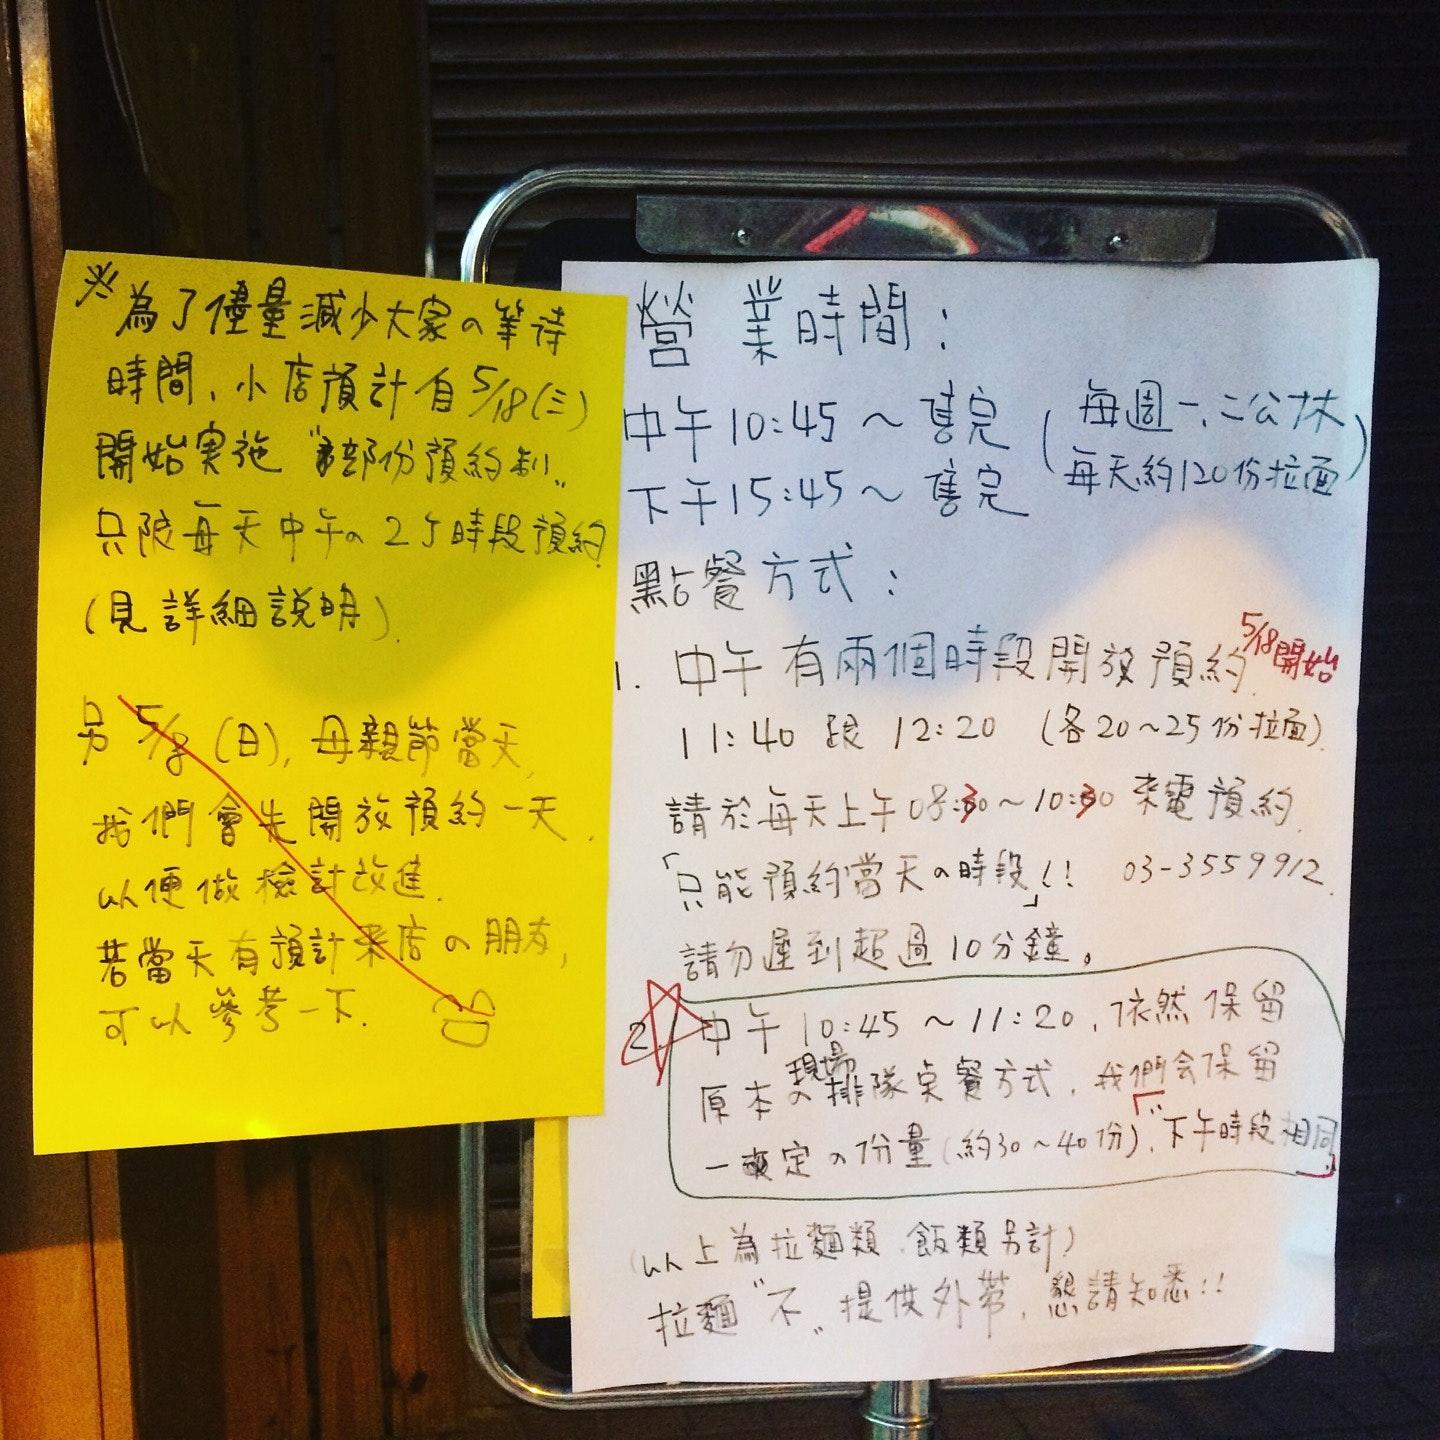 ※為了儘量減少大家の等待
時間、小店預計自5/18(三)
開始実施"部份預約制„
只限每天中午の2个時段預約
(見詳細説明).
另5/8(日),母親節當天,
我們會先開放預約一天,
以便做檢討改進.
若當天有預計來店の朋友,
可以參考一下.
營業時間:
中午10:45~售完
下午15:45~售完
(每週一、二公休
每天約120份拉面)
點餐方式:
1. 中午有兩個時段開放預約. 5/18開始
11:40 跟 12:20 (各20~25份拉面).
請於每天上午08:30~10:30 來電預約.
「只能預約當天の時段」!! 03-3559912.
請勿遲到超過10分鐘。
2. 中午10:45~11:20,依然保留
原本の現場排隊桌餐方式,我們会保留
一定の份量(約30~40份),"下午時段相同"
(以上為拉麵類,飯類另計)
拉麵"不„提供外帶,懇請知悉!!